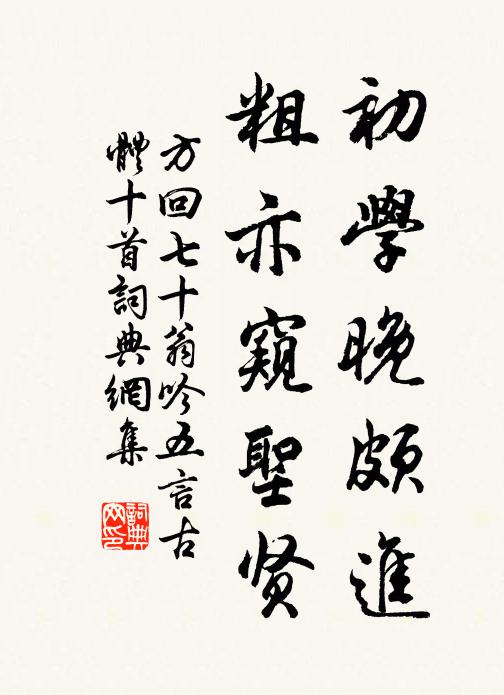 初學晚頗進
粗亦窺聖贤
方回七十翁吟五言古
體十首詞典網集
詞典
网印